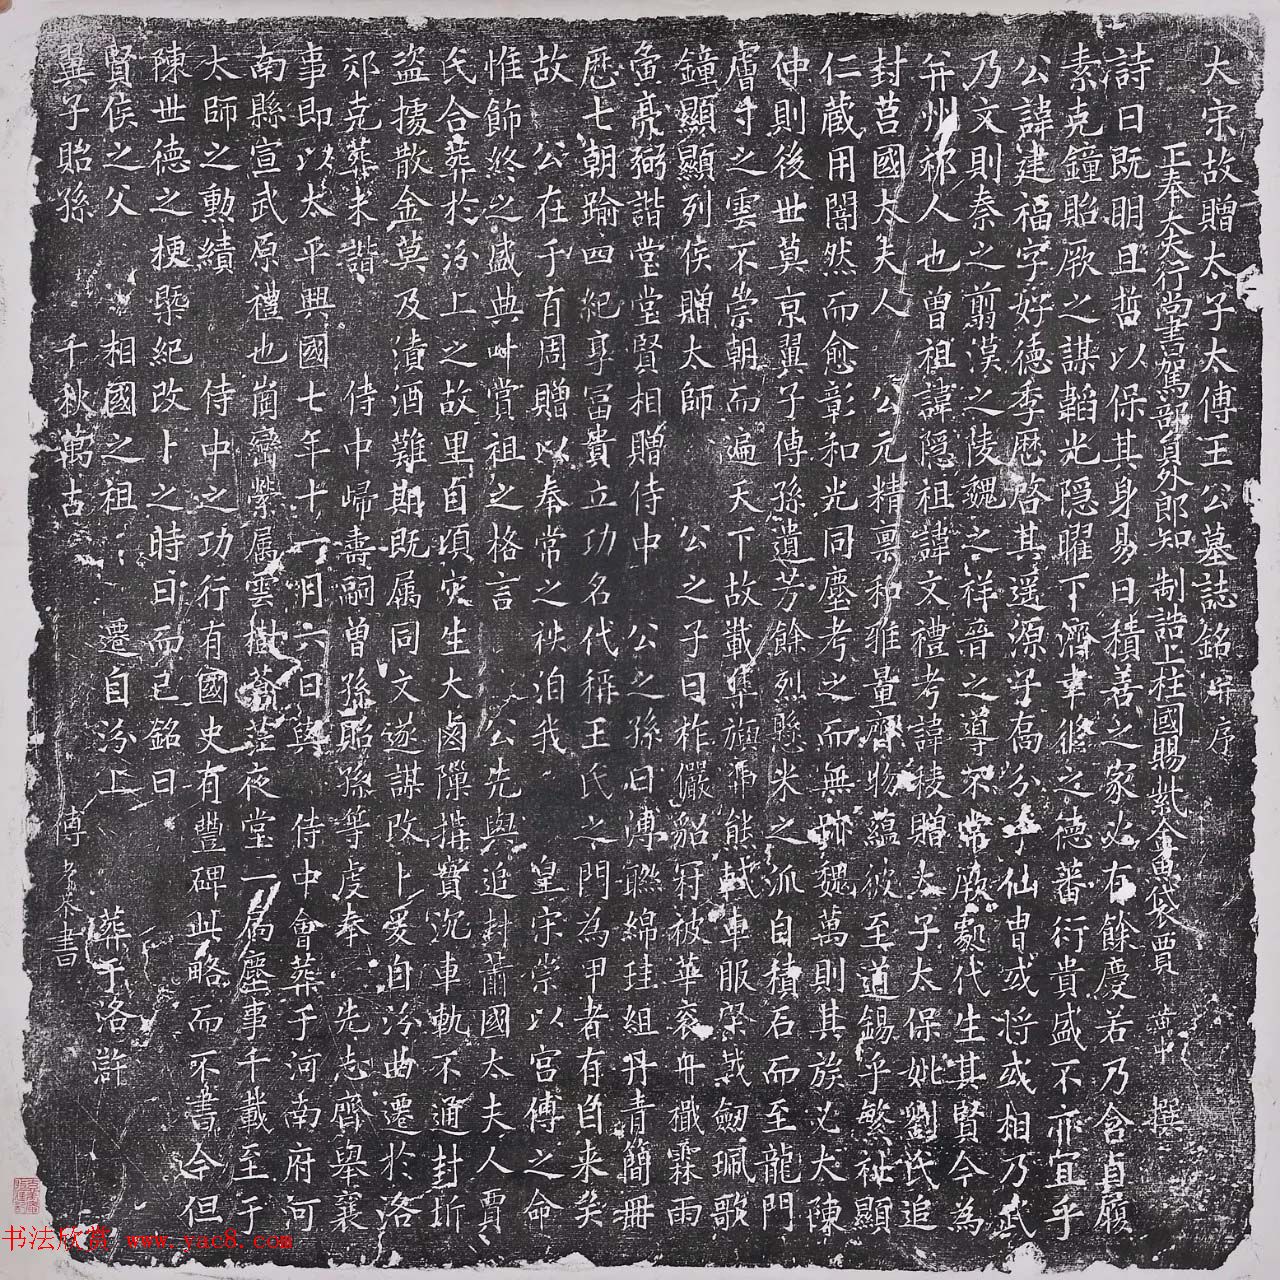 大宋故贈太子太傅王公墓誌銘并序
正奉大夫行尚書駕部員外郎知 制誥上柱國賜紫金魚袋賈 黃中 撰
詩曰既明且哲以保其身易曰積善之家必有餘慶若乃含貞履
素克鐘貽厥之謀韜光隱曜下濟聿脩之德蕃衍貴盛不亦宜乎
公諱建福字好德季歷啓其遥源子喬分乎仙胄或將或相乃武
乃文則秦之翦漢之陵魏之祥晉之導不常厥數代生其賢今為
并州祁人也曾祖諱隱祖諱文禮考諱稜贈太子太保妣劉氏追
封莒國太夫人 公元精禀和雅量齊物蘊彼至道錫乎繁祉顯
仁藏用闇然而愈彰和光同塵考之而無跡魏萬則其族必大陳
仲則後世莫京翼子傳孫遺芳餘烈懸米之派自積石而至龍門
膚寸之雲不崇朝而遍天下故載隼旟馮熊軾車服棨戟劒珮歌
鐘顯顯列侯贈太師 公之子曰祚儼貂冠被華衮舟檝霖雨
彝亮弼諧堂堂賢相贈侍中 公之孫曰溥聯綿珪組丹青簡冊
歷七朝踰四紀享冨貴立功名代稱王氏之門為甲者有自来矣
故 公在于有周贈以奉常之袟洎我 皇宋崇以宫傅之命
惟飾終之盛典叶賞祖之格言 公先與追封蕭國太夫人賈
氏合葬於汾上之故里自頃灾生大鹵隟搆賨沉車軌不通封圻
盜據散金莫及漬酒難期既属同文遂謀改卜爰自汾曲遷於洛
郊克葬未諧 侍中歸壽嗣曽孫貽孫等虔奉 先志齊舉襄
事即以太平興國七年十一月六日與 侍中會葬于河南府河
南縣宣武原禮也崗巒縈属雲樹蒼茫夜堂一扃塵事千載至于
太師之勲績 侍中之功行有國史有豐碑此略而不書今但
陳世德之梗槩紀改卜之時日而已銘曰
賢侯之父 相國之祖 遷自汾上 葬于洛滸
翼子貽孫 千秋萬古 傅 書
书法欣赏 www.yac8.com